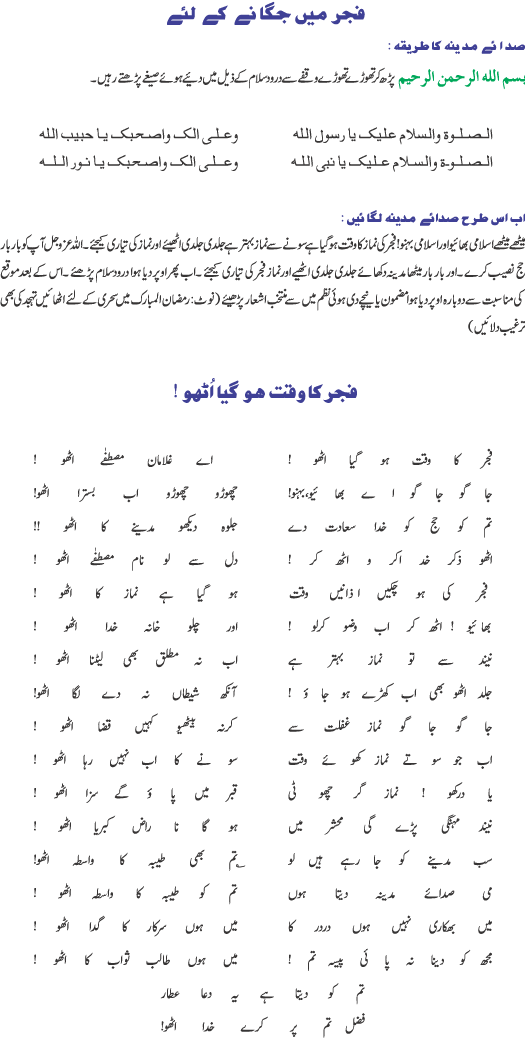 فجر میں جگانے کے لئے
صدائے مدینہ کا طریقہ :
بسم الله الرحمن الرحیم پڑھ کر تھوڑے تھوڑے وقفے سے درود سلام کے ذیل میں دیئے ہوئے صیغے پڑھتے رہیں۔
الصلوة والسلام علیک یا رسول الله وعلی الک واصحبک یا حبیب الله
الصلوة والسلام علیک یا نبی الله وعلی الک واصحبک یا نور الله
اب اس طرح صدائے مدینہ لگائیں :
میٹھے میٹھے اسلامی بھائیو اور اسلامی بہنو! فجر کی نماز کا وقت ہو گیا ہے سونے سے نماز بہتر ہے جلدی جلدی اٹھیئے اور نماز کی تیاری کیجئے۔ اللہ عزوجل آپ کو بار بار
حج نصیب کرے۔ اور بار بار میٹھا مدینہ دکھائے جلدی جلدی اٹھیے اور نماز فجر کی تیاری کیجئے۔ اب پھر اوپر دیا ہوا درود سلام پڑھئے۔ اس کے بعد موقع
کی مناسبت سے دوبارہ اوپر دیا ہوا مضمون یا نیچے دی ہوئی نظم میں سے منتخب اشعار پڑھیئے (نوٹ: رمضان المبارک میں سحری کے لئے اٹھائیں تہجد کی بھی
ترغیب دلائیں)
فجر کا وقت ہو گیا اُٹھو !
فجر کا وقت ہو گیا اٹھو ! اے غلامان مصطفٰے اٹھو !
جا گو جا گو اے بھا ئیو،بہنو! چھوڑو چھوڑو اب بسترا اٹھو!
تم کو حج کو خدا سعادت دے جلوہ دیکھو مدینے کا اٹھو !!
اٹھو ذکر خد اکر و اٹھ کر ! دل سے لو نام مصطفٰے اٹھو !
فجر کی ہو چکیں اذانیں وقت ہو گیا ہے نماز کا اٹھو !
بھائیو ! اٹھ کر اب وضو کرلو ! اور چلو خانہ خدا اٹھو !
نیند سے تو نماز بہتر ہے اب نہ مطلق بھی لیٹنا اٹھو !
جلد اٹھو بھی اب کھڑے ہو جا ؤ ! آنکھ شیطاں نہ دے لگا اٹھو!
جا گو جا گو نماز غفلت سے کرنہ بیٹھیو کہیں قضا اٹھو !
اب جو سو تے نماز کھو ئے وقت سو نے کا اب نہیں رہا اٹھو !
یا درکھو ! نماز گر چھو ٹی قبر میں پا ؤ گے سزا اٹھو !
نیند مہنگی پڑے گی محشر میں ہو گا نا راض کبریا اٹھو !
سب مدینے کو جا رہے ہیں لو تم بھی طیبہ کا واسطہ اٹھو!
می صدائے مدینہ دیتا ہوں تم کو طیبہ کا واسطہ اٹھو !
میں بھکاری نہیں ہوں دردر کا میں ہوں سرکار کا گدا اٹھو !
مجھ کو دینا نہ پا ئی پیسہ تم ! میں ہوں طالب ثواب کا اٹھو !
تم کو دیتا ہے یہ دعا عطار
فضل تم پر کرے خدا اٹھو!